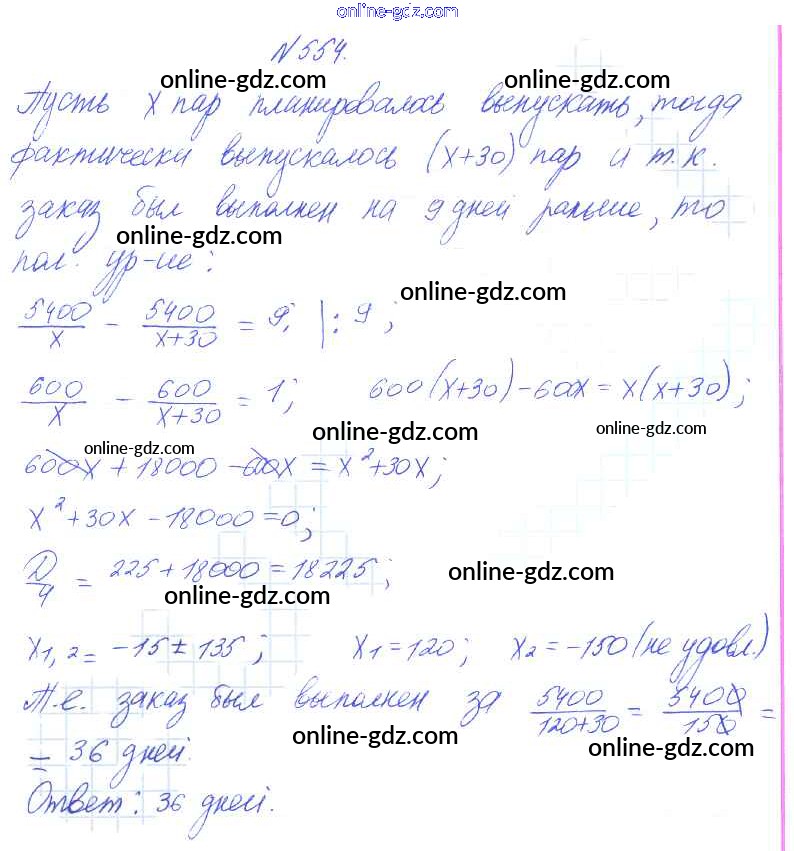 online-gdz.com
N 554.
online-gdz.com online-gdz.com
Пусть x пар планировалось выпускать, тогда
фактически выпускалось (x+30) пар и т.к.
заказ был выполнен на 9 дней раньше, то
online-gdz.com
пол. ур-ие:
online-gdz.com
5400/x - 5400/(x+30) = 9; |: 9;
600/x - 600/(x+30) = 1; 600(x+30)-600x = x(x+30);
online-gdz.com online-gdz.com
online-gdz.com
600x + 18000 - 600x = x²+30x;
x²+30x-18000=0;
D/4 = 225+18000=18225;
online-gdz.com
online-gdz.com
x1,2= -15±135; x1=120; x2=-150 (не удовл.)
Т.е. заказ был выполнен за 5400/(120+30) = 5400/150 =
online-gdz.com online-gdz.com
= 36 дней.
Ответ: 36 дней.